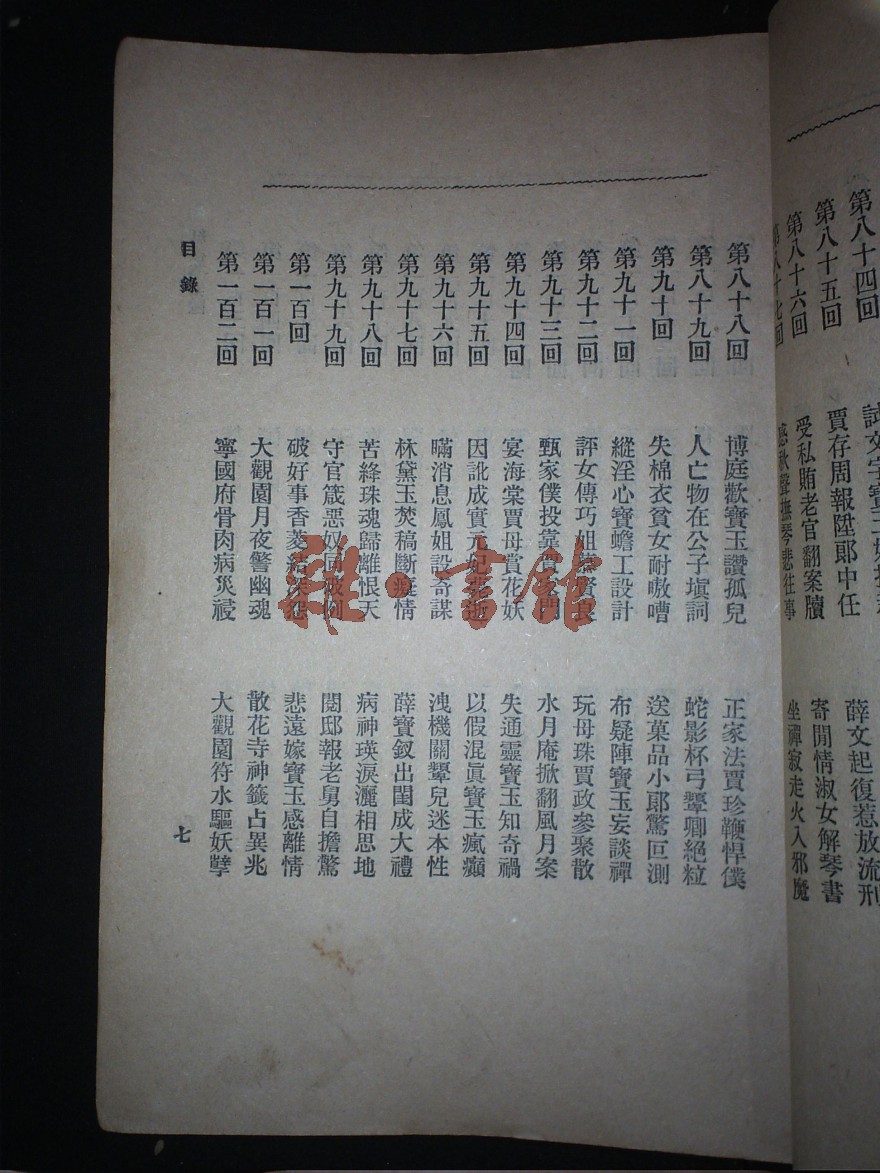 第八十四回 試文字寶玉
第八十五回 賈存周報陞郎中任 薛文起復惹放流刑
第八十六回 受私賄老官翻案牘 寄閒情淑女解琴書
第八十七回 感秋聲撫琴悲往事 坐禪寂走火入邪魔
第八十八回 博庭歡寶玉讚孤兒 正家法賈珍鞭悍僕
第八十九回 人亡物在公子塡詞 蛇影杯弓顰卿絕粒
第九十回 失棉衣貧女耐嗷嘈 送菓品小郞驚叵測
第九十一回 縱淫心寶蟾工設計 布疑陣寶玉妄談禪
第九十二回 評女傳巧姐慕賢良 玩母珠賈政參聚散
第九十三回 甄家僕投靠賈家門 水月庵掀翻風月案
第九十四回 宴海棠賈母賞花妖 失通靈寶玉知奇禍
第九十五回 因訛成實元妃薨逝 以假混眞寶玉瘋癲
第九十六回 瞞消息鳳姐設奇謀 洩機關顰兒迷本性
第九十七回 林黛玉焚稿斷癡情 薛寶釵出閨成大禮
第九十八回 苦絳珠魂歸離恨天 病神瑛淚灑相思地
第九十九回 守官箴惡奴同破例 閱邸報老舅自擔驚
第一百回 破好事香菱結深怨 悲遠嫁寶玉感離情
第一百一回 大觀園月夜警幽魂 散花寺神籤占異兆
第一百二回 寧國府骨肉病災祲 大觀園符水驅妖孽
目錄
七